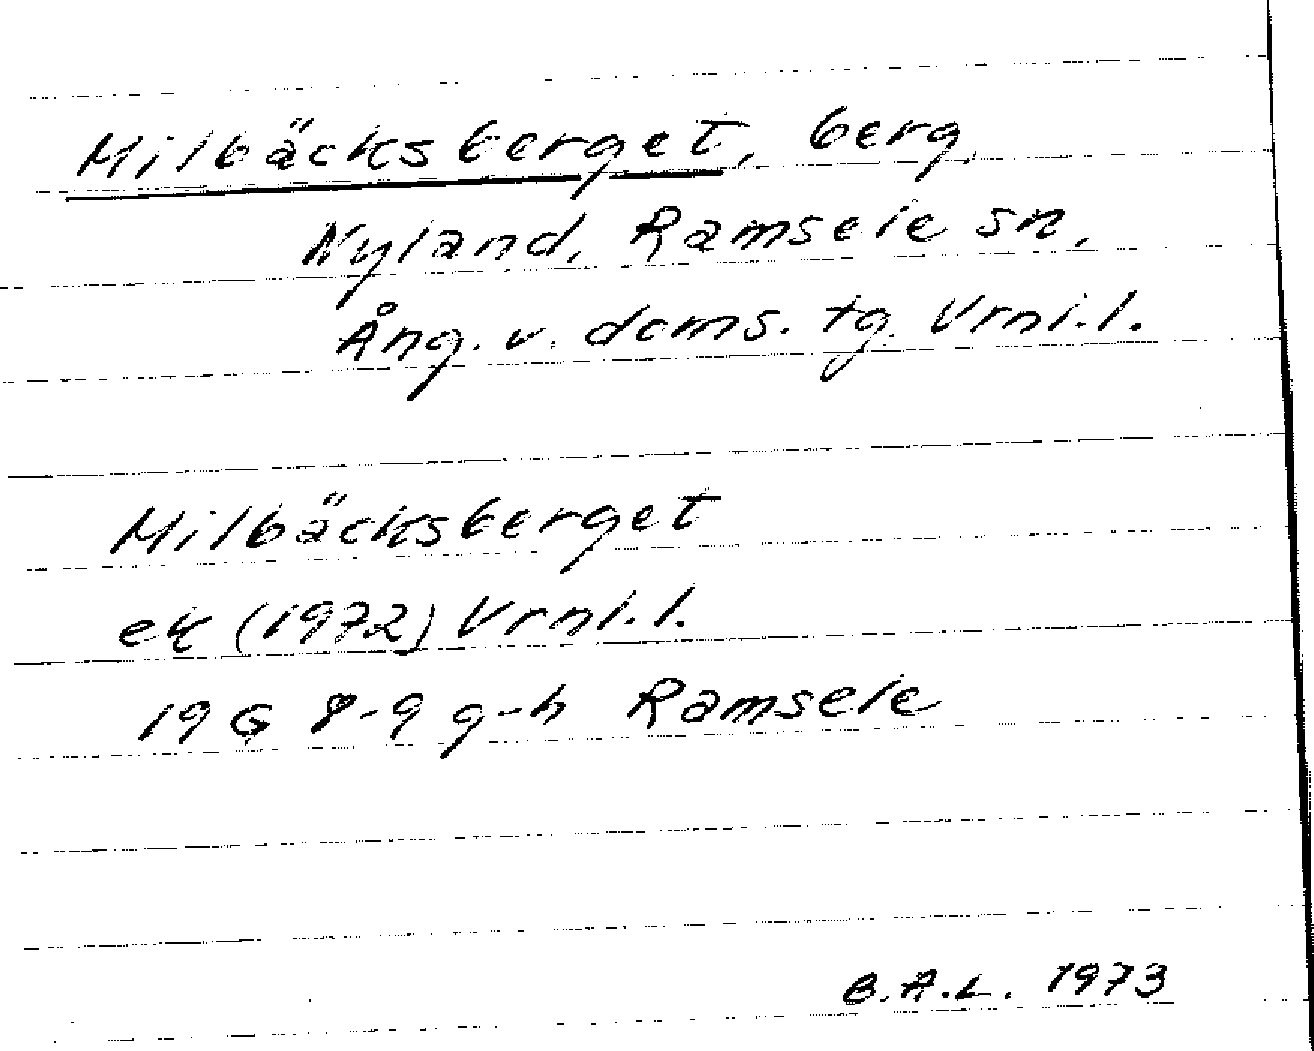 Milbäcksberget, berg
Nyland, Ramsele sn,
Ång. v. doms. tg. Vrnl.l.
Milbäcksberget
ek (1972) Vrnl.l.
19 G 8-9 g-h Ramsele
B.A.L. 1973